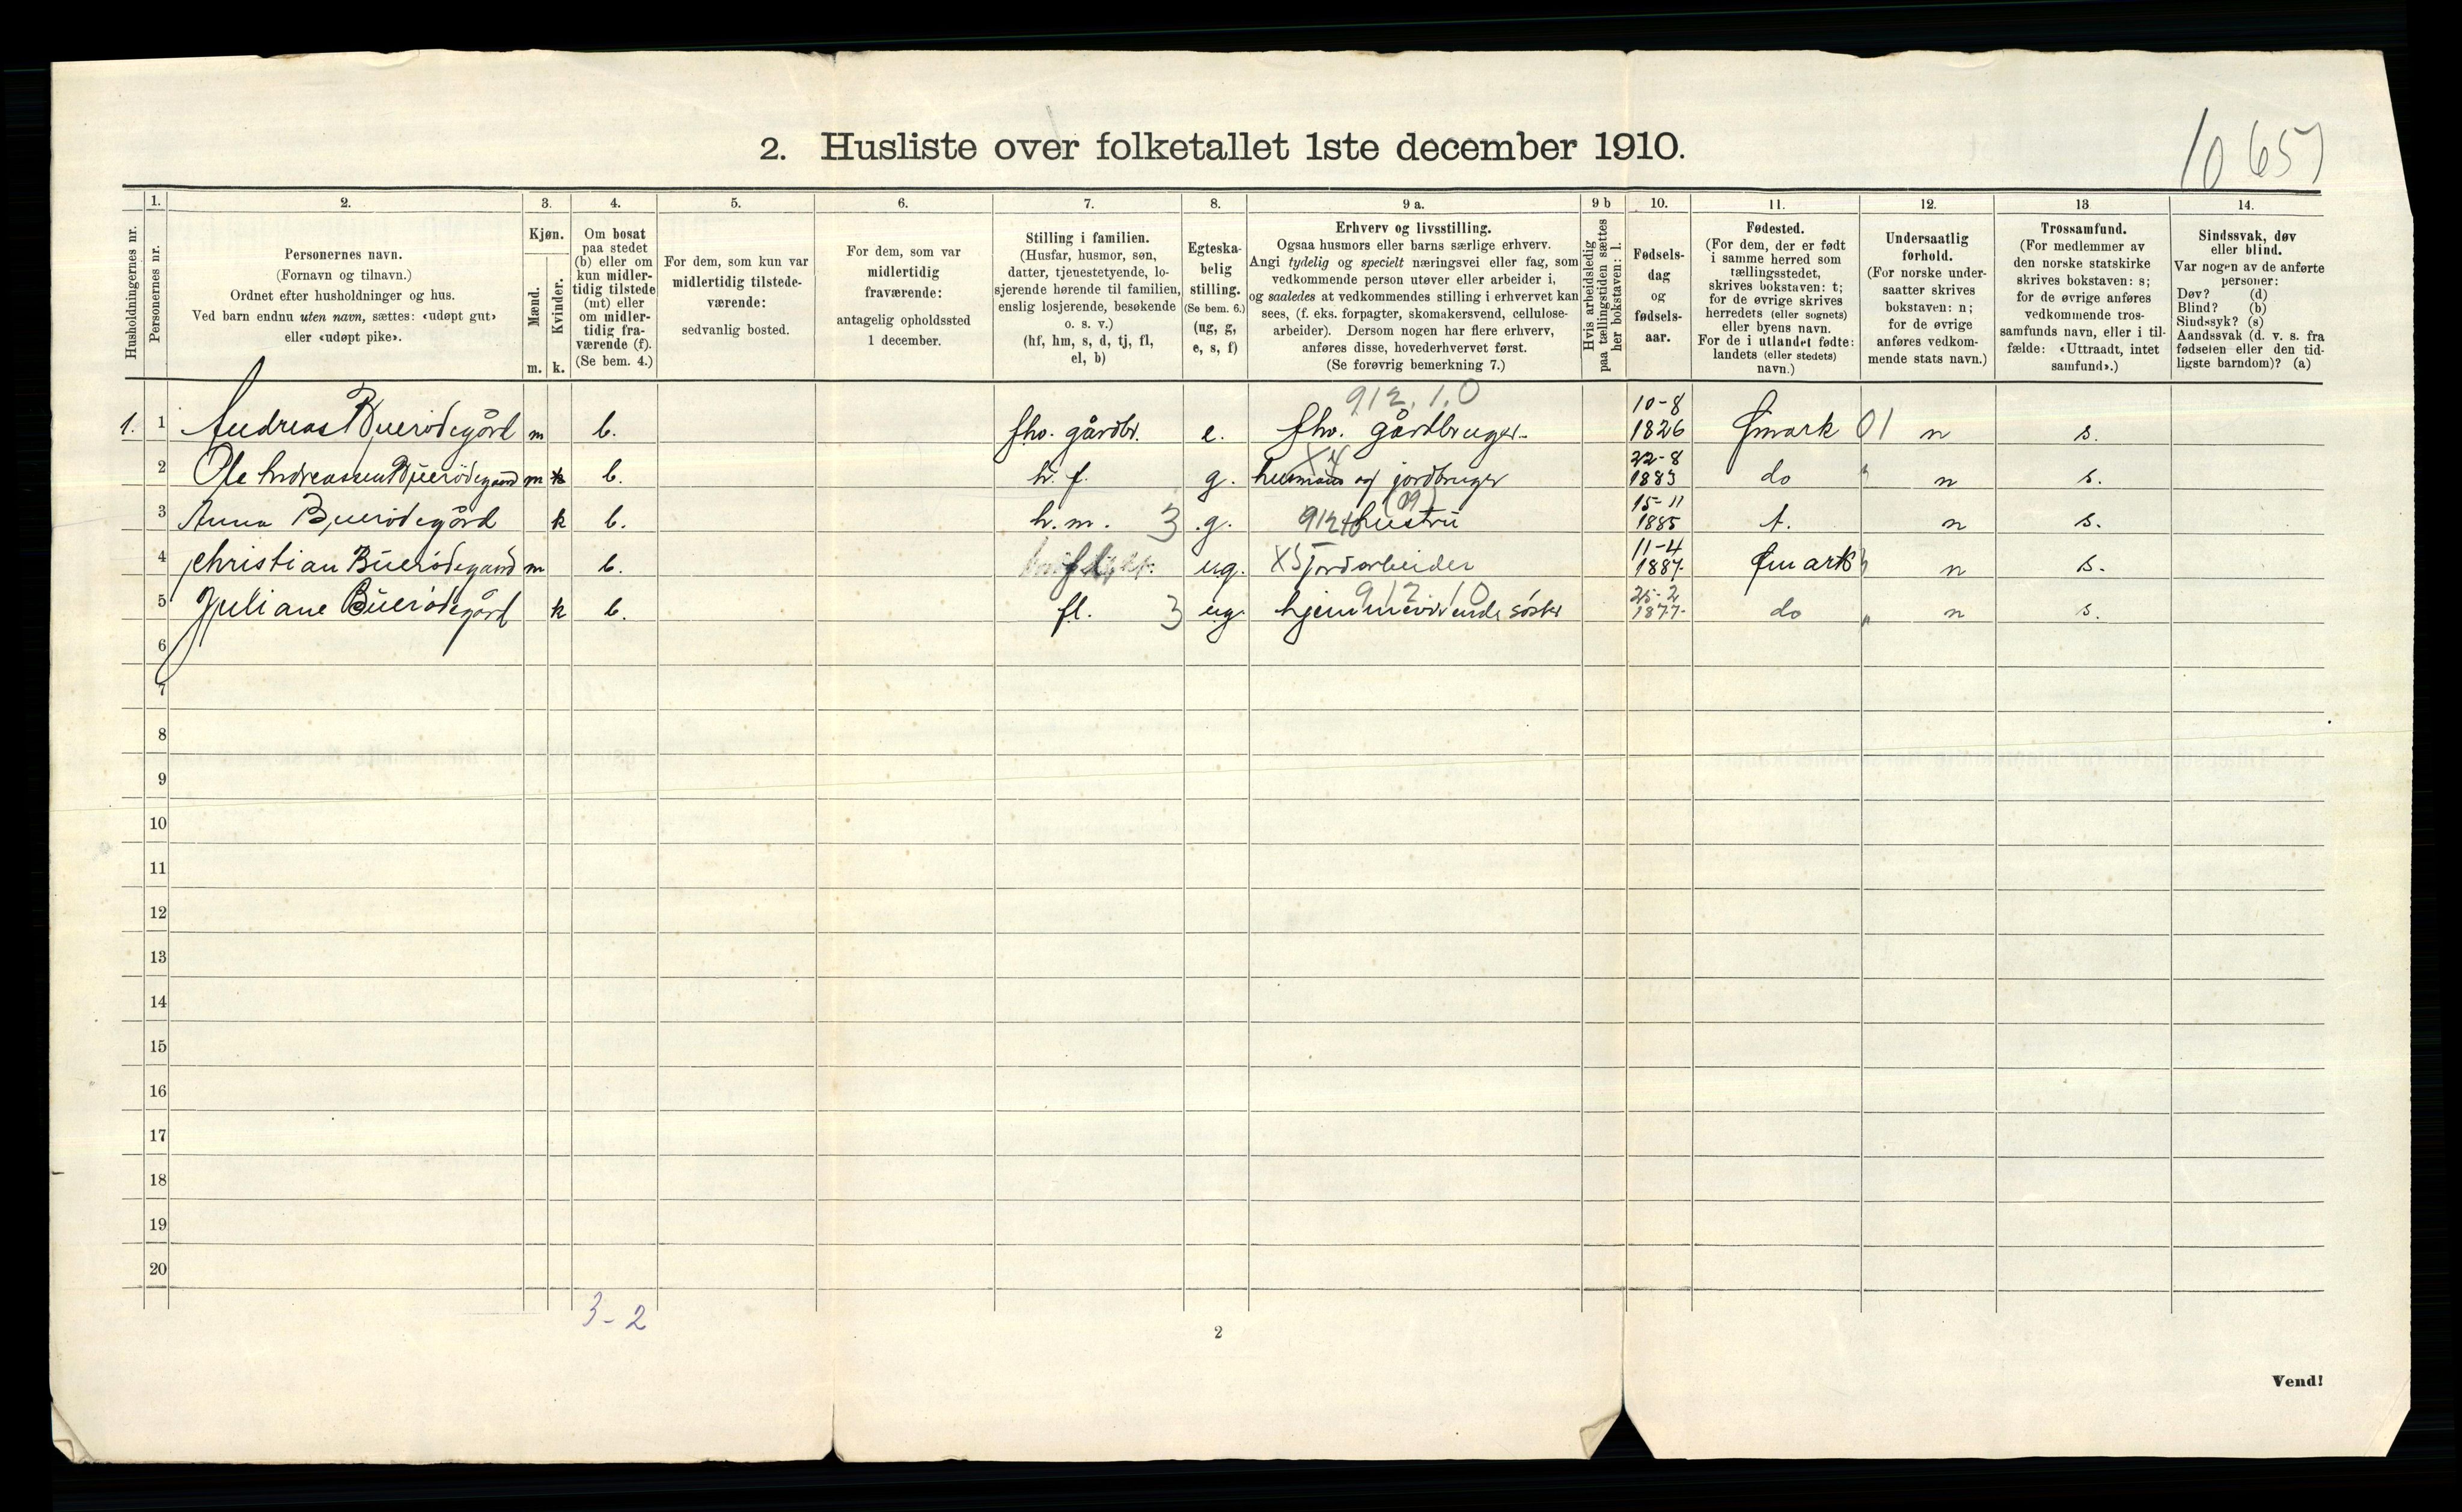 10 657
2. Husliste over folketallet 1ste december 1910.
Husholdningernes nr.
1.
Personernes nr.
2.
Personernes navn.
(Fornavn og tilnavn.)
Ordnet efter husholdninger og hus.
Ved barn endnu uten navn, sættes: «udøpt gut»
eller «udøpt pike».
3.
Kjøn.
Mænd.
Kvinder.
m. k.
4.
Om bosat
paa stedet
(b) eller om
kun midler-
tidig tilstede
(mt) eller
om midler-
tidig fra-
værende (f).
(Se bem. 4.)
5.
For dem, som kun var
midlertidig tilstede-
værende:
sedvanlig bosted.
6.
For dem, som var
midlertidig
fraværende:
antagelig opholdssted
1 december.
7.
Stilling i familien.
(Husfar, husmor, søn,
datter, tjenestetyende, lo-
sjerende hørende til familien,
enslig losjerende, besøkende
o. s. v.)
(hf, hm, s, d, tj, fl,
el, b)
8.
Egteska-
belig
stilling.
(Se bem. 6.)
(ug, g,
e, s, f)
9 a.
Erhverv og livsstilling.
Ogsaa husmors eller barns særlige erhverv.
Angi tydelig og specielt næringsvei eller fag, som
vedkommende person utøver eller arbeider i,
og saaledes at vedkommendes stilling i erhvervet kan
sees, (f. eks. forpagter, skomakersvend, cellulose-
arbeider). Dersom nogen har flere erhverv,
anføres disse, hovederhvervet først.
(Se forøvrig bemerkning 7.)
9 b
Hvis arbeidsledig
paa tællingstiden sættes
her bokstaven: l.
10.
Fødsels-
dag
og
fødsels-
aar.
11.
Fødested.
(For dem, der er født
i samme herred som
tællingsstedet,
skrives bokstaven: t;
for de øvrige skrives
herredets (eller sognets)
eller byens navn.
For de i utlandet fødte:
landets (eller stedets)
navn.)
12.
Undersaatlig
forhold.
(For norske under-
saatter skrives
bokstaven: n;
for de øvrige
anføres vedkom-
mende stats navn.)
13
Trossamfund.
(For medlemmer av
den norske statskirke
skrives bokstaven: s;
for de øvrige anføres
vedkommende tros-
samfunds navn, eller i til-
fælde: «Uttraadt, intet
samfund».)
14.
Sindssvak, døv
eller blind.
Var nogen av de anførte
personer:
Døv? (d)
Blind? (b)
Sindssyk? (s)
Aandssvak (d. v. s. fra
fødselen eller den tid-
ligste barndom)? (a)
912.1.0
10-8
1. 1 Andreas Buerödegård m b. fho. gårdbr. e. fho. gårdbruger 1826 Ømark 01 n s.
X4 22-8
2 Ole Andreassen Buerödegaard m b. h. f. g. husmand og jordbruger 1883 do " n s.
(09) 15-11
3 Anna Buerödegård k b. h. m. 3 g. hustru 1885 t. n s.
11-4
4 Christian Buerödegaard m b. ug. X5 Jordarbeider 1887 Ømark " n s.
912.10 25-2
5 Juliane Buerödegård k b. fl. 3 ug hjemmeværende søster 1877 do " n s.
6
7
8
9
10
11
12
13
14
15
16
17
18
19
20
3-2
2
Vend!